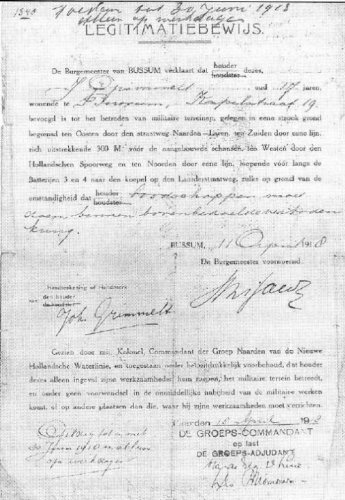 1540
tot 30 Juni 1918
alleen op werkdagen
LEGITIMATIEBEWIJS.
De Burgemeester van BUSSUM verklaart dat houder
houdster dezes,
J. Grimmelt oud 17 jaren,
wonende te Bussum, Kapelstraat 19
bevoegd is tot het betreden van militaire terreinen, gelegen in eene strook grond
begrensd ten Oosten door den straatweg Naarden—Laren, ten Zuiden door eene lijn,
zich uitstrekkende 300 M. vóór de aangebouwde schansen, ten Westen door den
Hollandschen Spoorweg en ten Noorden door eene lijn, loopende vóór langs de
Batterijen 3 en 4 naar den koepel op den Landstraatweg, zulks op grond van de
omstandigheid dat houder
houdster boodschappen moet
doen binnen bovenbedoelde verboden
kring.
BUSSUM, 11 April 1918
De Burgemeester voornoemd.
Handteekening of Handmerk
van den houder
de houdster
Joh. Grimmelt
Gezien door mij, Kolonel, Commandant der Groep Naarden van de Nieuwe
Hollandsche Waterlinie, en toegestaan onder uitdrukkelijk voorbehoud, dat houder
dezes alleen ingeval zijne werkzaamheden hem nopen, het militaire terrein betreedt,
en onder geen voorwendsel in de onmiddellijke nabijheid van de militaire werken
komt, of op andere plaatsen dan die, waar hij zijne werkzaamheden moet verrichten.
Naarden April 1918
DE GROEPS-COMMANDANT
op last
DE GROEPS-ADJUDANT